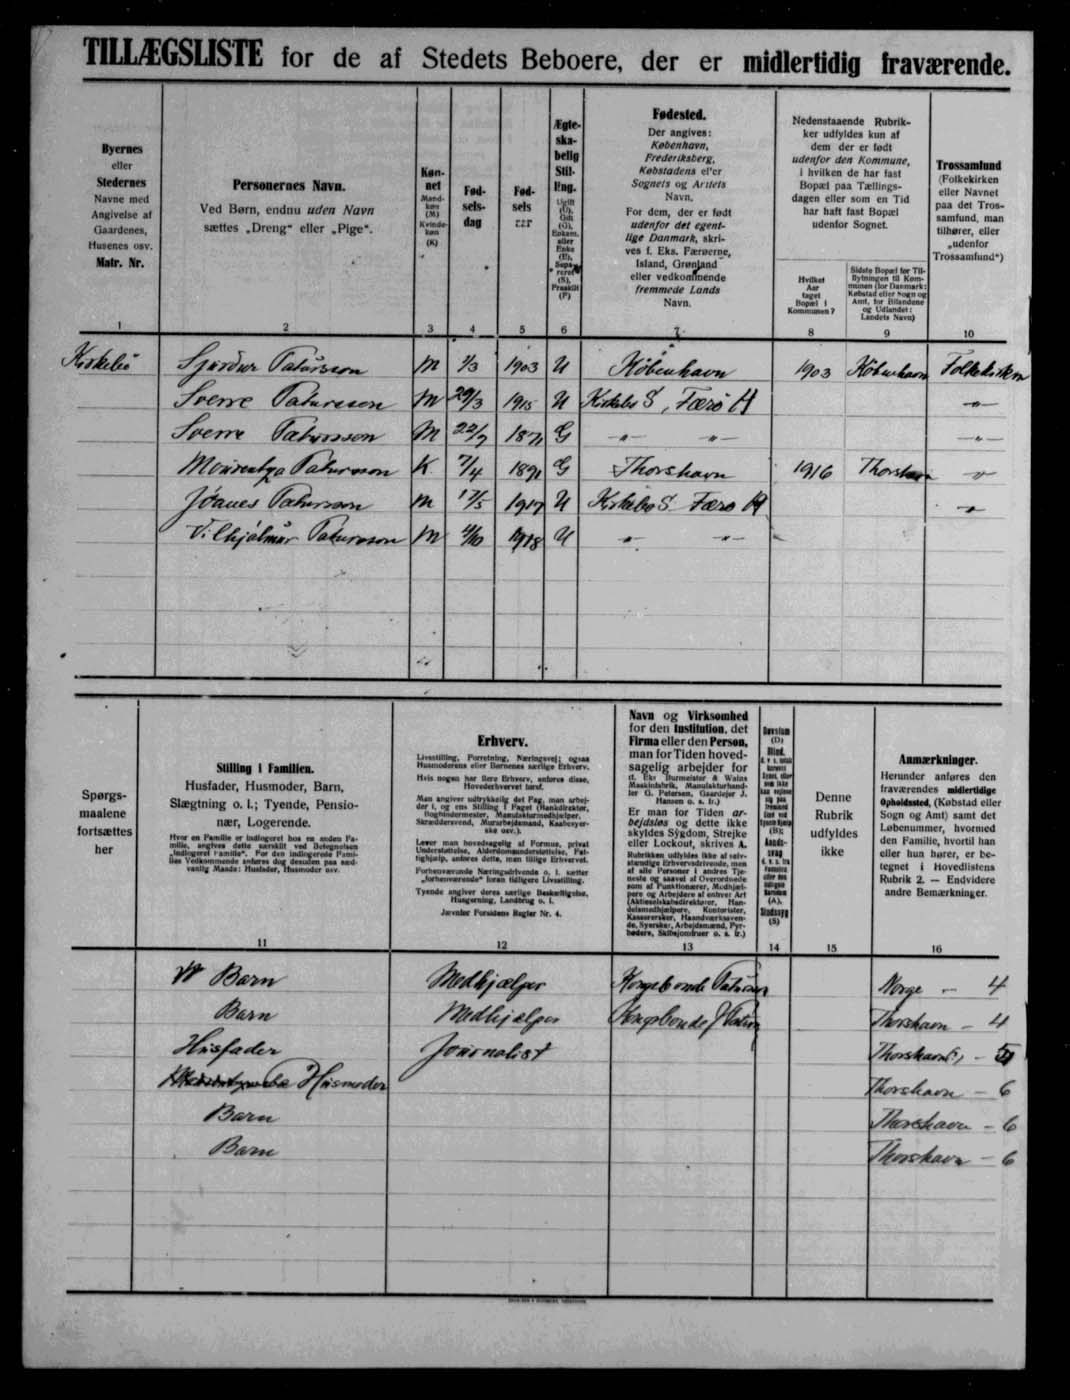 TILLÆGSLISTE for de af Stedets Beboere, der er midlertidig fraværende.
Byernes
eller
Stedernes
Navne med
Angivelse af
Gaardenes,
Husenes osv.
Matr. Nr.
1
Personernes Navn.
Ved Børn, endnu uden Navn
sættes „Dreng" eller „Pige".
2
Køn-
net
Mand-
køn
(M)
Kvinde-
køn
(K)
3
Fød-
sels-
dag
4
Fød-
sels
aar
5
Ægte-
ska-
belig
Stil-
ling.
Ugift
(U),
Gift
(G),
Enkem.
eller
Enke
(E),
Sepa-
reret
(S),
Fraskilt
(F)
6
Fødested.
Der angives:
København,
Frederiksberg,
Købstadens eller
Sognets og Amtets
Navn.
For dem, der er født
udenfor det egent-
lige Danmark, skri-
ves f. Eks. Færøerne,
Island, Grønland
eller vedkommende
fremmede Lands
Navn.
7
Nedenstaaende Rubrik-
ker udfyldes kun af
dem der er født
udenfor den Kommune,
i hvilken de har fast
Bopæl paa Tællings-
dagen eller som en Tid
har haft fast Bopæl
udenfor Sognet.
Hvilket
Aar
taget
Bopæl i
Kommunen?
8
Sidste Bopæl før Til-
flytningen til Kom-
munen (for Danmark:
Købstad eller Sogn og
Amt, for Bilandene
og Udlandet:
Landets Navn)
9
Trossamfund
(Folkekirken
eller Navnet
paa det Tros-
samfund, man
tilhører, eller
„udenfor
Trossamfund")
10
Kirkebø Sjurður Patursson M 1/3 1903 U København 1903 København Folkekirken
Sverre Patursson M 29/3 1915 U Kirkebø S, Færø A -"-
Sverre Patursson M 22/7 1871 G -"- -"- -"-
Patursson K 7/4 1891 G Thorshavn 1916 Thorshavn "
Jóanes Patursson M 17/5 1917 U Kirkebø S. Færø A "
Vilhjálmur Patursson M 4/10 1918 U -"- -"-
Spørgs-
maalene
fortsættes
her
Stilling i Familien.
Husfader, Husmoder, Barn,
Slægtning o. l.; Tyende, Pensio-
nær, Logerende.
Hvor en Familie er indlogeret hos en anden Fa-
milie, angives dette særskilt ved Betegnelsen
„indlogeret Familie". For den indlogerede Fami-
lies Vedkommende anføres dog desuden paa sæd-
vanlig Maade: Husfader, Husmoder osv.
11
Erhverv.
Livsstilling, Forretning, Næringsvej; ogsaa
Husmoderens eller Børnenes særlige Erhverv.
Hvis nogen har flere Erhverv, anføres disse,
Hovederhvervet først.
Man angiver udtrykkelig det Fag, man arbej-
der i, og ens Stilling i Faget (Bankdirektør,
Bogbindermester, Manufakturmedhjælper,
Skræddersvend, Murarbejdsmand, Kaabesyer-
ske osv.).
Lever man hovedsagelig af Formue, privat
Understøttelse, Alderdomsunderstøttelse, Fat-
tighjælp, anføres dette, men tillige Erhvervet.
Forhenværende Næringsdrivende o. l. sætter
„forhenværende" foran tidligere Livsstilling.
Tyende angiver deres særlige Beskæftigelse,
Husgerning, Landbrug o. l.
Jævnfør Forsidens Regler Nr. 4.
12
Navn og Virksomhed
for den Institution, det
Firma eller den Person,
man for Tiden hoved-
sagelig arbejder for
(f. Eks. Burmeister & Wains
Maskinfabrik, Manufakturhand-
ler G. Petersen, Gaardejer J.
Hansen o. s. fr.)
Er man for Tiden ar-
bejdsløs og dette ikke
skyldes Sygdom, Strejke
eller Lockout, skrives A.
Rubrikken udfyldes ikke af selv-
stændige Erhvervsdrivende, men
af alle Personer i andres Tje-
neste og saavel af Overordnede
som af Funktionærer, Medhjæl-
pere og Arbejdere af enhver Art
(Aktieselskabsdirektører, Han-
delsmedhjælpere, Kontorister,
Kassererske, Haandværkssven-
de, Syersker, Arbejdsmænd, Fyr-
bødere, Skibsjomfruer o. s. fr.)
13
Døvstum
(D)
Blind,
(B);
Aands-
svag
(A),
Sindssyg
(S)
14
Denne
Rubrik
udfyldes
ikke
15
Anmærkninger.
Herunder anføres den
fraværendes midlertidige
Opholdssted, (Købstad eller
Sogn og Amt) samt det
Løbenummer, hvormed
den Familie, hvortil han
eller hun hører, er be-
tegnet i Hovedlistens
Rubrik 2. — Endvidere
andre Bemærkninger.
16
Barn Medhjælper Kongsbonde Norge - 4
Barn Medhjælper Kongsbonde J Thorshavn - 4
Husfader Journalist Thorshavn -
Husmoder Thorshavn - 6
Barn Thorshavn - 6
Barn Thorshavn - 6